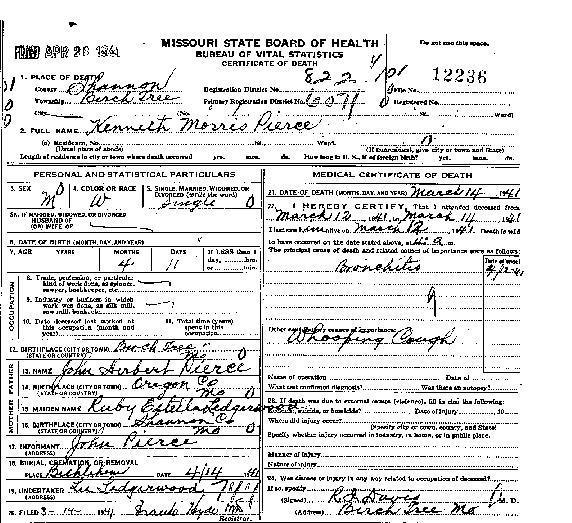 FILED APR 26 1941
MISSOURI STATE BOARD OF HEALTH
Do not use this space.
BUREAU OF VITAL STATISTICS
CERTIFICATE OF DEATH
1. PLACE OF DEATH
822
12236
County Shannon
Registration District No.
File No.
Township Birch Tree
Primary Registration District No.
Registered No.
City
(No.
St.
Ward)
2. FULL NAME Kenneth Morris Pierce
(a) Residence, No.
St.
Ward.
(Usual place of abode)
(If nonresident, give city or town and State)
Length of residence in city or town where death occurred yrs. mos. ds. How long in U. S., if of foreign birth? yrs. mos. ds.
PERSONAL AND STATISTICAL PARTICULARS
3. SEX
M
4. COLOR OR RACE
W
5. SINGLE, MARRIED, WIDOWED, OR DIVORCED (write the word)
Single
5A. IF MARRIED, WIDOWED, OR DIVORCED
HUSBAND OF
(OR) WIFE OF
6. DATE OF BIRTH (MONTH, DAY, AND YEAR)
7. AGE YEARS MONTHS DAYS
If LESS than 1 day, hrs. or min.
4 11
OCCUPATION
8. Trade, profession, or particular kind of work done, as spinner, sawyer, bookkeeper, etc.
9. Industry or business in which work was done, as silk mill, saw mill, bank, etc.
10. Date deceased last worked at this occupation (month and year)
11. Total time (years) spent in this occupation
12. BIRTHPLACE (CITY OR TOWN) Birch Tree
(STATE OR COUNTRY) Mo
FATHER
13. NAME John Herbert Pierce
14. BIRTHPLACE (CITY OR TOWN) Oregon Co
(STATE OR COUNTRY) Mo
MOTHER
15. MAIDEN NAME Ruby Estella Ledgerwood
16. BIRTHPLACE (CITY OR TOWN) Shannon Co
(STATE OR COUNTRY) Mo
17. INFORMANT John Pierce
(ADDRESS)
18. BURIAL, CREMATION, OR REMOVAL
PLACE
DATE
19. UNDERTAKER Ledgerwood
(ADDRESS)
20. FILED 3-14-1941
Registrar.
MEDICAL CERTIFICATE OF DEATH
21. DATE OF DEATH (MONTH, DAY, AND YEAR) March 14 1941
22. I HEREBY CERTIFY, That I attended deceased from
March 12, 1941, to March 14, 1941
I last saw him alive on March 12, 1941. Death is said
to have occurred on the date stated above, at m.
The principal cause of death and related causes of importance were as follows:
Date of onset
Bronchitis
Other contributory causes of importance:
Whooping Cough
Name of operation Date of
What test confirmed diagnosis? Was there an autopsy?
23. If death was due to external causes (violence), fill in also the following:
Accident, suicide, or homicide? Date of injury 19
Where did injury occur?
(Specify city or town, county, and State)
Specify whether injury occurred in industry, in home, or in public place.
Manner of injury
Nature of injury
24. Was disease or injury in any way related to occupation of deceased?
If so, specify
(Signed) M. D.
(Address) Birch Tree Mo